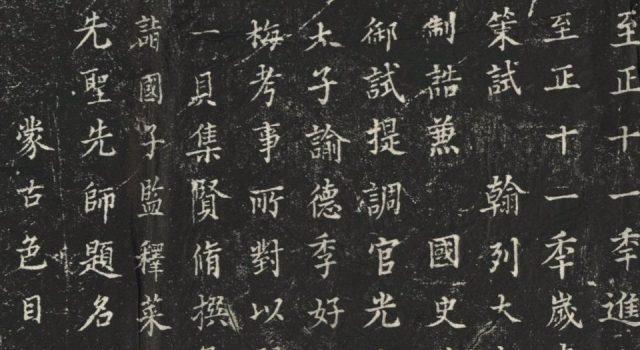 至正十一秊進
至正十一秊歲
策試 翰列大
制誥兼 國史
御試提調官光
太子諭德李好
梅考事所對以
一員集賢脩撰
詣國子監釋菜
先聖先師題名
蒙古色目